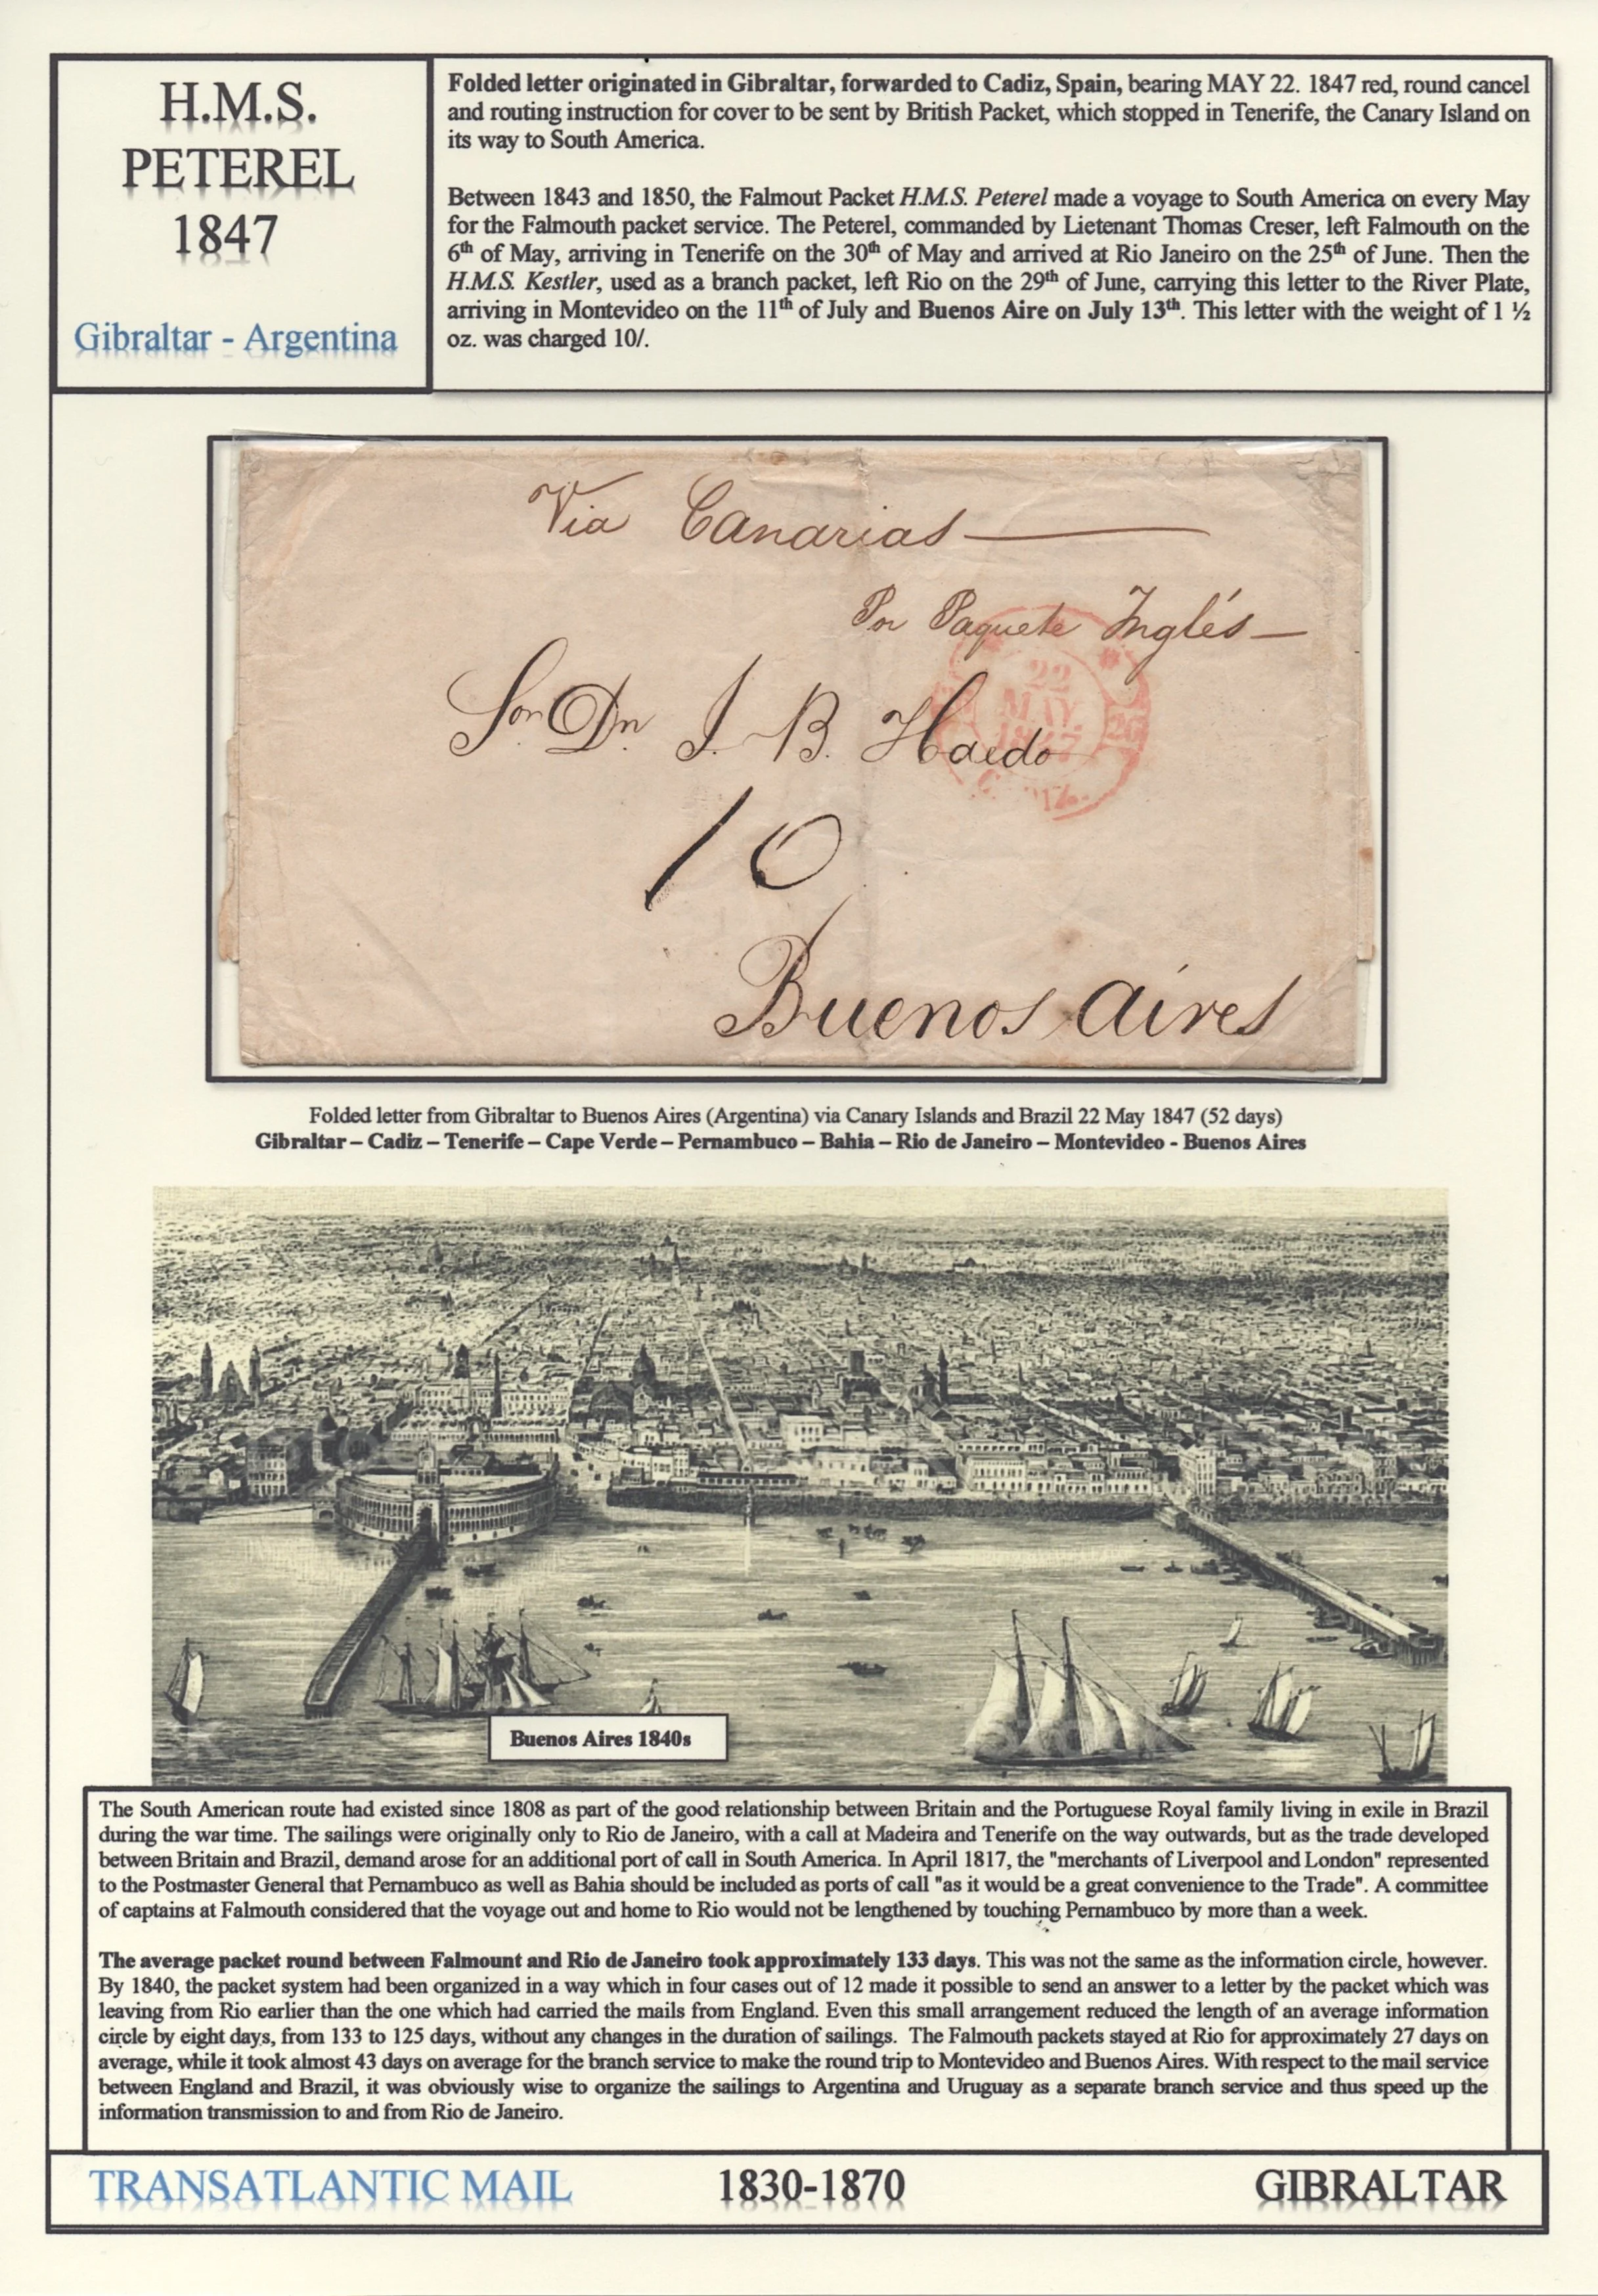 H.M.S.
PETEREL
1847
Gibraltar - Argentina
Folded letter originated in Gibraltar, forwarded to Cadiz, Spain, bearing MAY 22. 1847 red, round cancel
and routing instruction for cover to be sent by British Packet, which stopped in Tenerife, the Canary Island on
its way to South America.
Between 1843 and 1850, the Falmout Packet H.M.S. Peterel made a voyage to South America on every May
for the Falmouth packet service. The Peterel, commanded by Lietenant Thomas Creser, left Falmouth on the
6th of May, arriving in Tenerife on the 30th of May and arrived at Rio Janeiro on the 25th of June. Then the
H.M.S. Kestler, used as a branch packet, left Rio on the 29th of June, carrying this letter to the River Plate,
arriving in Montevideo on the 11th of July and Buenos Aire on July 13th. This letter with the weight of 1 ½
oz. was charged 10/.
Via Canarias
Por Paquete Inglés
22
MAY
1847
Sor. Dn. J. B. Haedo
10
Buenos Aires
Folded letter from Gibraltar to Buenos Aires (Argentina) via Canary Islands and Brazil 22 May 1847 (52 days)
Gibraltar – Cadiz – Tenerife – Cape Verde – Pernambuco – Bahia – Rio de Janeiro – Montevideo - Buenos Aires
Buenos Aires 1840s
The South American route had existed since 1808 as part of the good relationship between Britain and the Portuguese Royal family living in exile in Brazil
during the war time. The sailings were originally only to Rio de Janeiro, with a call at Madeira and Tenerife on the way outwards, but as the trade developed
between Britain and Brazil, demand arose for an additional port of call in South America. In April 1817, the "merchants of Liverpool and London" represented
to the Postmaster General that Pernambuco as well as Bahia should be included as ports of call "as it would be a great convenience to the Trade". A committee
of captains at Falmouth considered that the voyage out and home to Rio would not be lengthened by touching Pernambuco by more than a week.
The average packet round between Falmount and Rio de Janeiro took approximately 133 days. This was not the same as the information circle, however.
By 1840, the packet system had been organized in a way which in four cases out of 12 made it possible to send an answer to a letter by the packet which was
leaving from Rio earlier than the one which had carried the mails from England. Even this small arrangement reduced the length of an average information
circle by eight days, from 133 to 125 days, without any changes in the duration of sailings. The Falmouth packets stayed at Rio for approximately 27 days on
average, while it took almost 43 days on average for the branch service to make the round trip to Montevideo and Buenos Aires. With respect to the mail service
between England and Brazil, it was obviously wise to organize the sailings to Argentina and Uruguay as a separate branch service and thus speed up the
information transmission to and from Rio de Janeiro.
TRANSATLANTIC MAIL
1830-1870
GIBRALTAR